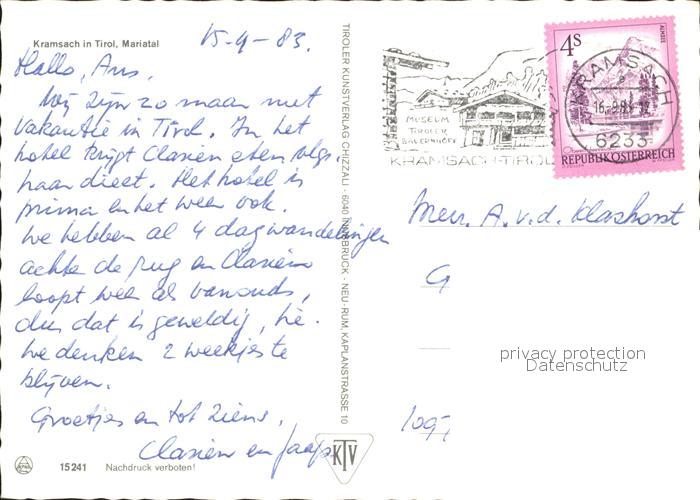 Kramsach in Tirol, Mariatal
15-9-83.
Hallo, Ans,
Wij zijn zo maar met
vakantie in Tirol. In het
hotel krijgt Clasien eten volgs.
haar dieet. Het hotel is
prima en het weer ook.
We hebben al 4 dagwandelingen
achter de rug en Clasien
loopt weer als vanouds,
dus dat is geweldig, hè.
We denken 2 weekjes te
blijven.
Groetjes en tot ziens,
Clasien en Jaap
15241 Nachdruck verboten!
TIROLER KUNSTVERLAG CHIZZALI · 6040 INNSBRUCK - NEU-RUM, KAPLANSTRASSE 10
KTV
MUSEUM
TIROLER
BAUERNHÖFE
KRAMSACH-TIROL
KRAMSACH
16.-9.83
6233
4S
REPUBLIK ÖSTERREICH
Mevr. A. v.d. Klashorst
G
109
privacy protection
Datenschutz